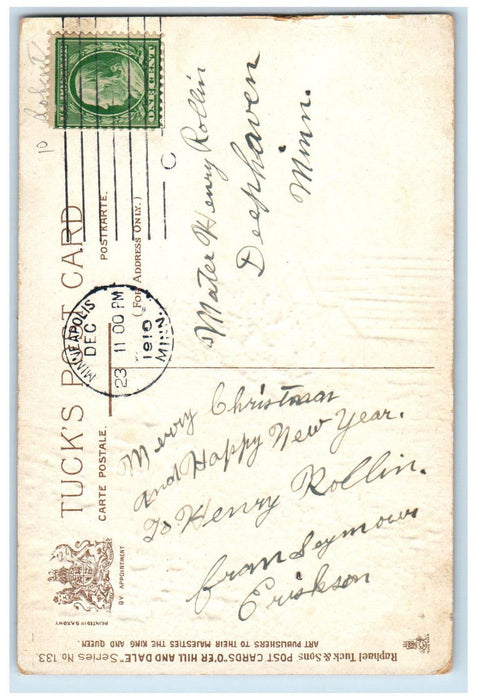 10
ONE CENT
TUCK'S POST CARD
CARTE POSTALE.
POSTKARTE.
(FOR ADDRESS ONLY.)
MINNEAPOLIS
DEC
23 11 00 PM
1910
MINN.
C
BY APPOINTMENT
PRINTED IN SAXONY
Mater Henry Rollin
Deephaven
Minn.
Merry Christman
and Happy New Year.
To Henry Rollin.
fran Seymour
Erikson
Raphael Tuck & Sons POST CARDS "O'ER HILL AND DALE" Series No. 133
ART PUBLISHERS TO THEIR MAJESTIES THE KING AND QUEEN.